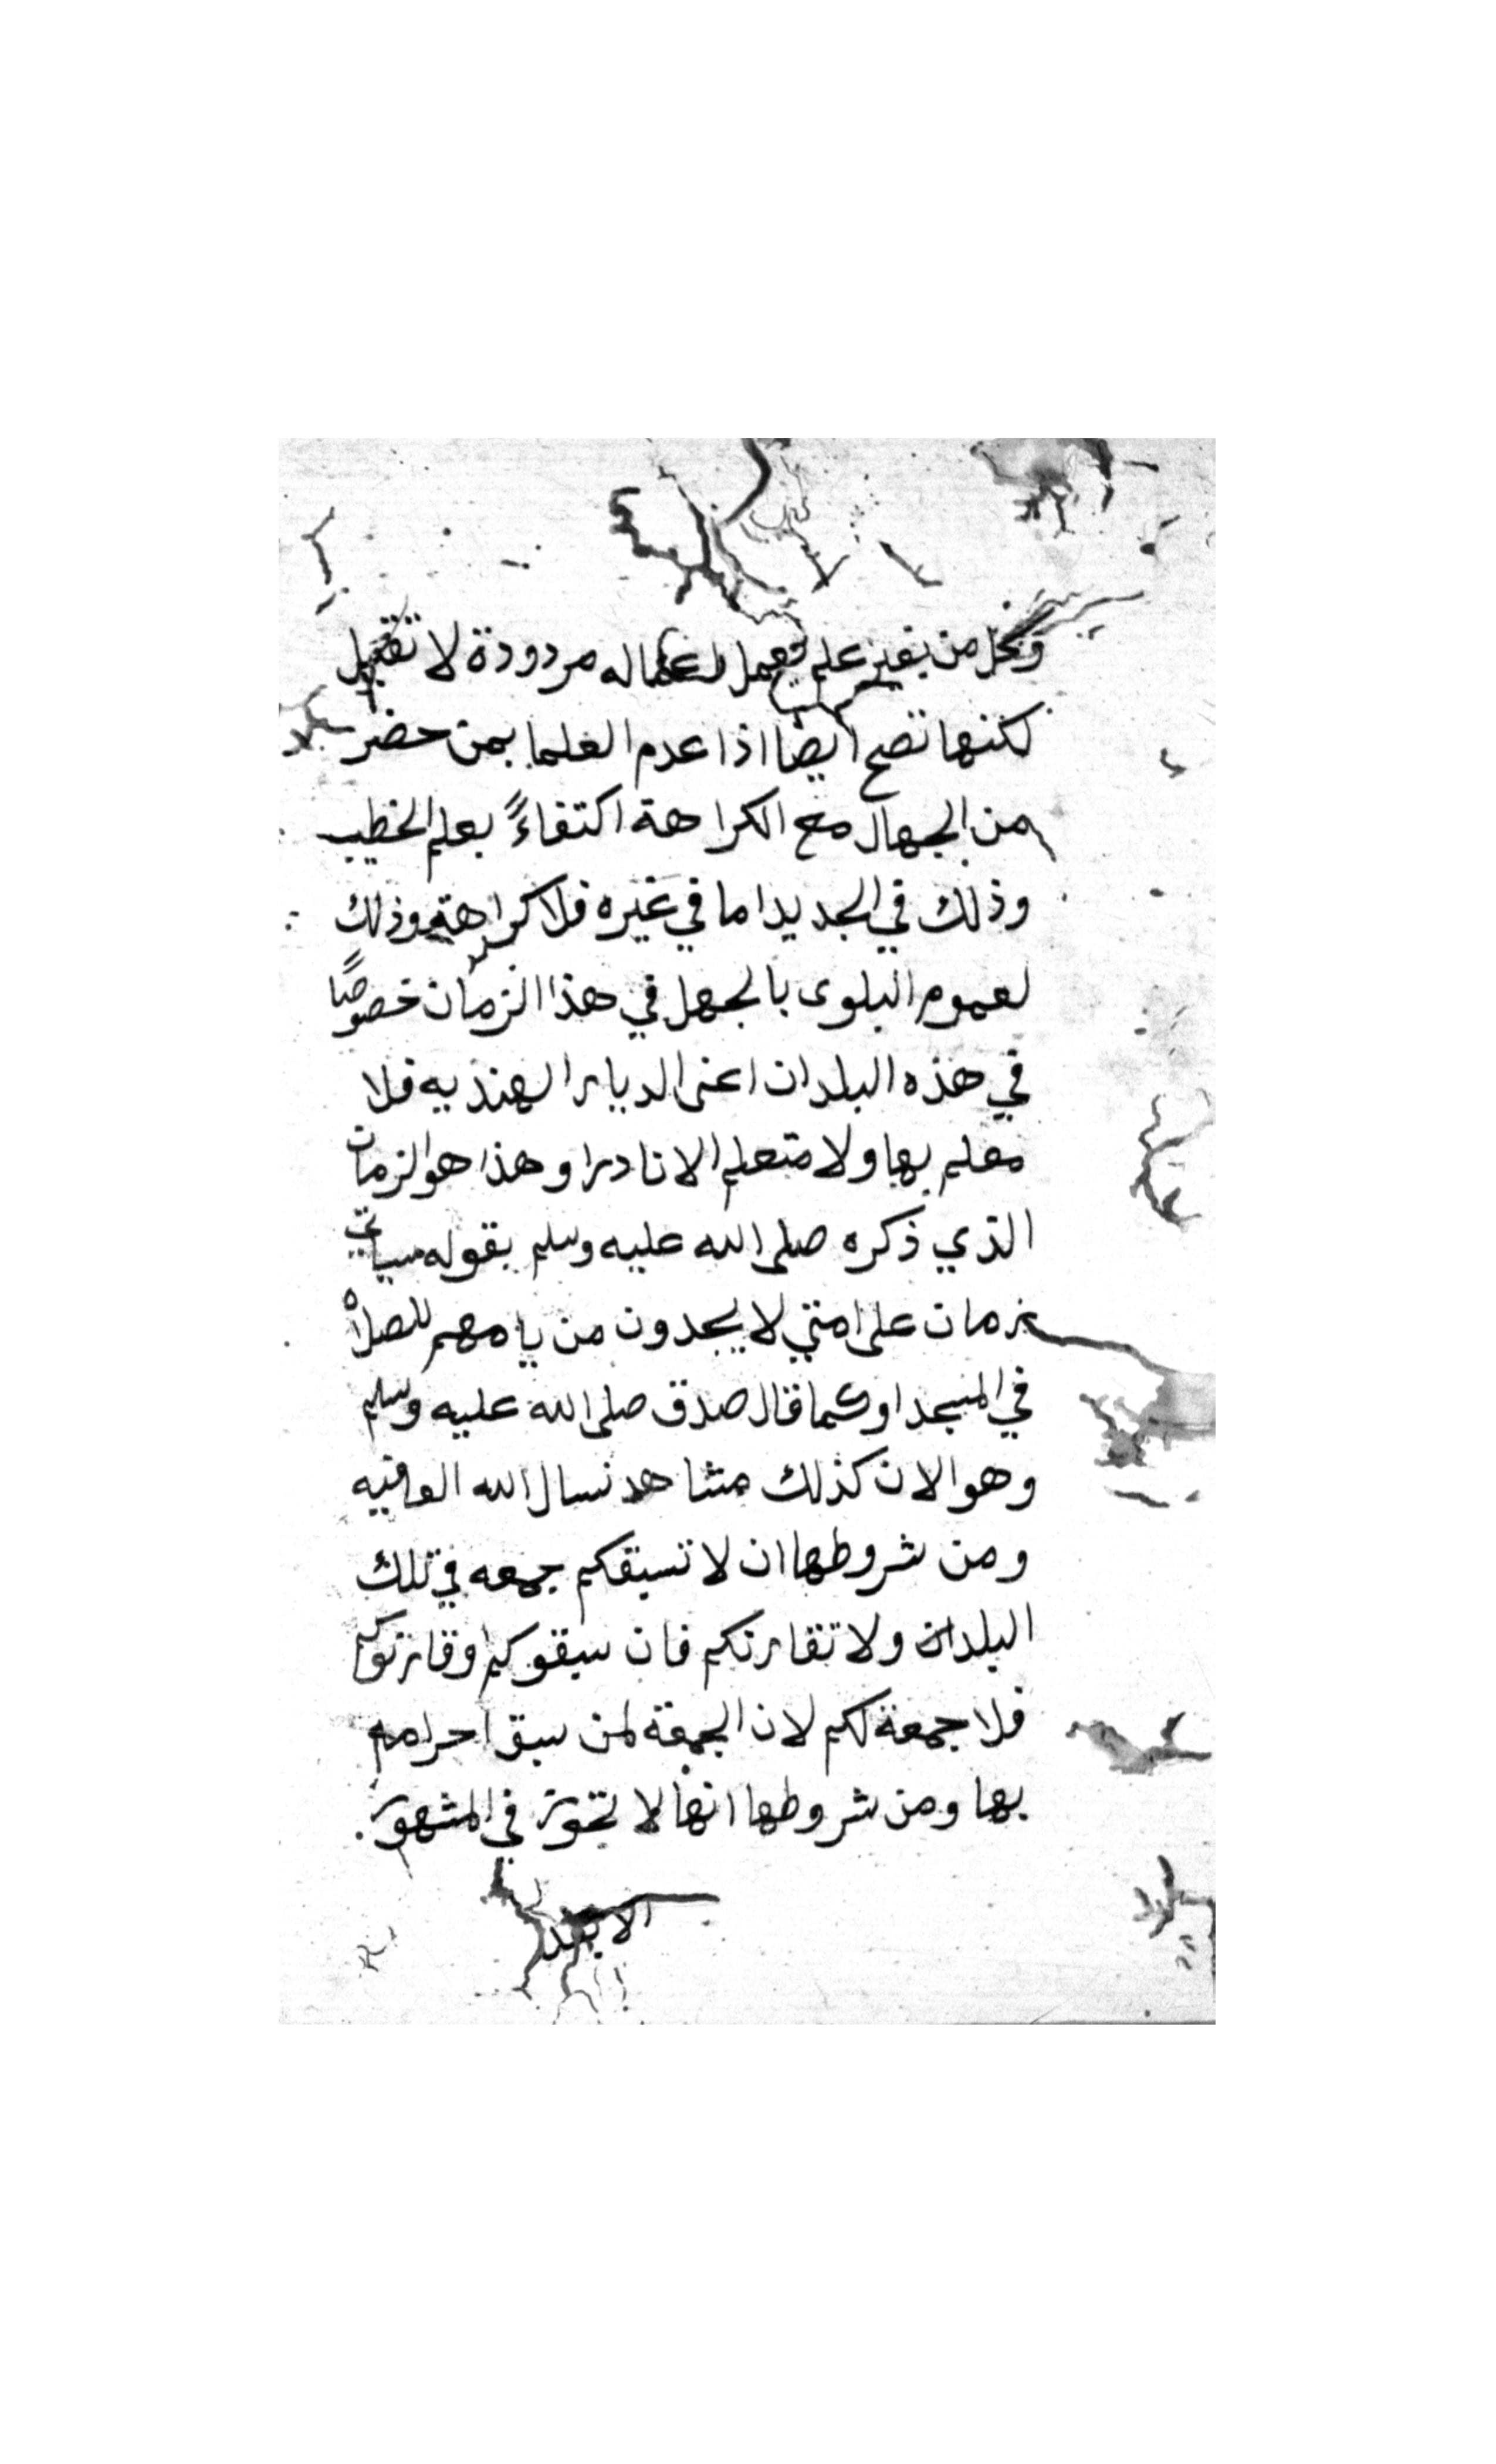 وكل من بغير علم يعمل اعماله مردودة لا تقبل
لكنها تصح ايضا اذا عدم العلما بمن حضر
من الجهال مع الكراهة اكتفاءً بعلم الخطيب
وذلك في الجديد اما في غيره فلا كراهة وذلك
لعموم البلوى بالجهل في هذا الزمان خصوصًا
في هذه البلدان اعنى الديار الهنديه فلا
معلم بها ولا متعلم الا نادرا وهذا هو الزمان
الذي ذكره صلى الله عليه وسلم بقوله سياتي
زمان على امتي لا يجدون من يامهم للصلاة
في المسجد او كما قال صدق صلى الله عليه وسلم
وهو الان كذلك مشاهد نسال الله العافيه
ومن شروطها ان لا تسبقكم جمعه في تلك
البلدان ولا تقارنكم فان سبقوكم او قارنوكم
فلا جمعة لكم لان الجمعة لمن سبق احرامه
بها ومن شروطها انها لا تجوز في المشهور
الابعد